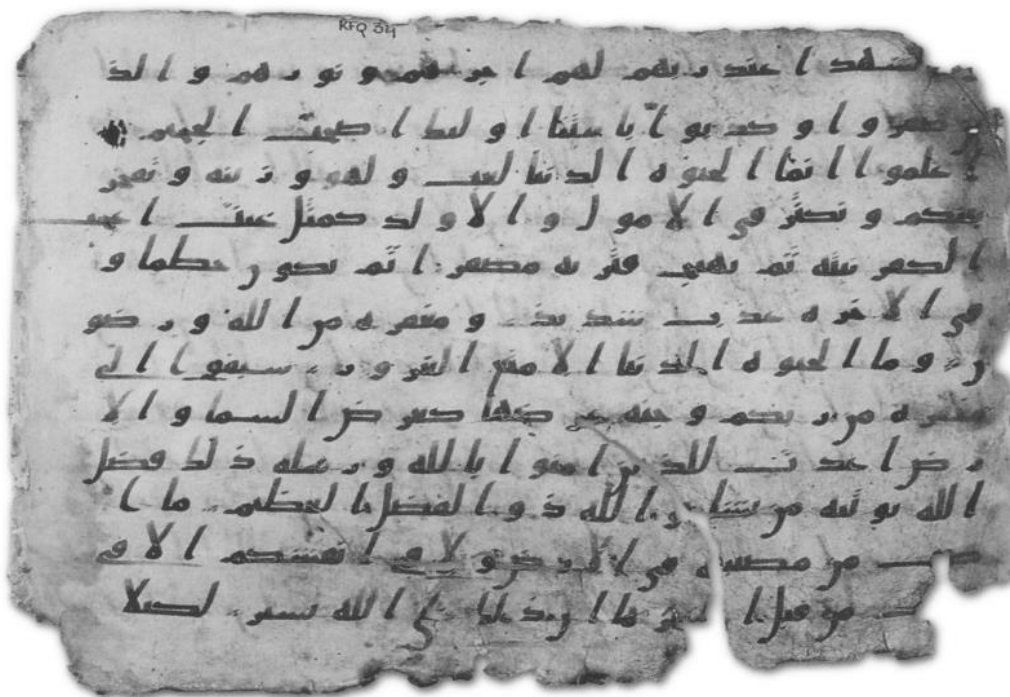 RFQ 34
الشهدا عند ربهم لهم اجرهم ونورهم والذ
كفروا وكذبوا بايتنا اولئك اصحب الجحيم
اعلموا انما الحيوه الدنيا لعب ولهو وزينه وتفخر
بينكم وتكثر في الامول والاولد كمثل غيث اعجب
الكفر نبته ثم يهيج فتريه مصفرا ثم يكون حطما و
في الاخره عذب شديد ومغفره من الله ورضو
ن وما الحيوه الدنيا الا متع الغرور سبقوا الى
مغفره من ربكم وجنه عرضها كعرض السما والا
رض اعدت للذين امنوا بالله ورسله ذلك فضل
الله يوتيه من يشا والله ذو الفضل العظيم ما ا
صب من مصيبه في الارض ولا في انفسكم الا في
من قبل ان ذلك على الله يسير لكيلا